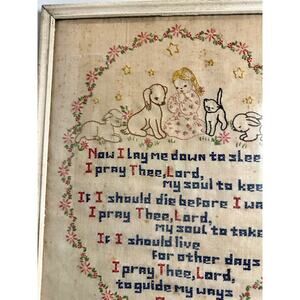 Now I lay me down to slee
I pray Thee, Lord,
my soul to kee
If I should die before I wa
I pray Thee, Lord,
my soul to take
If I should live
for other days
I pray Thee, Lord,
to guide my ways